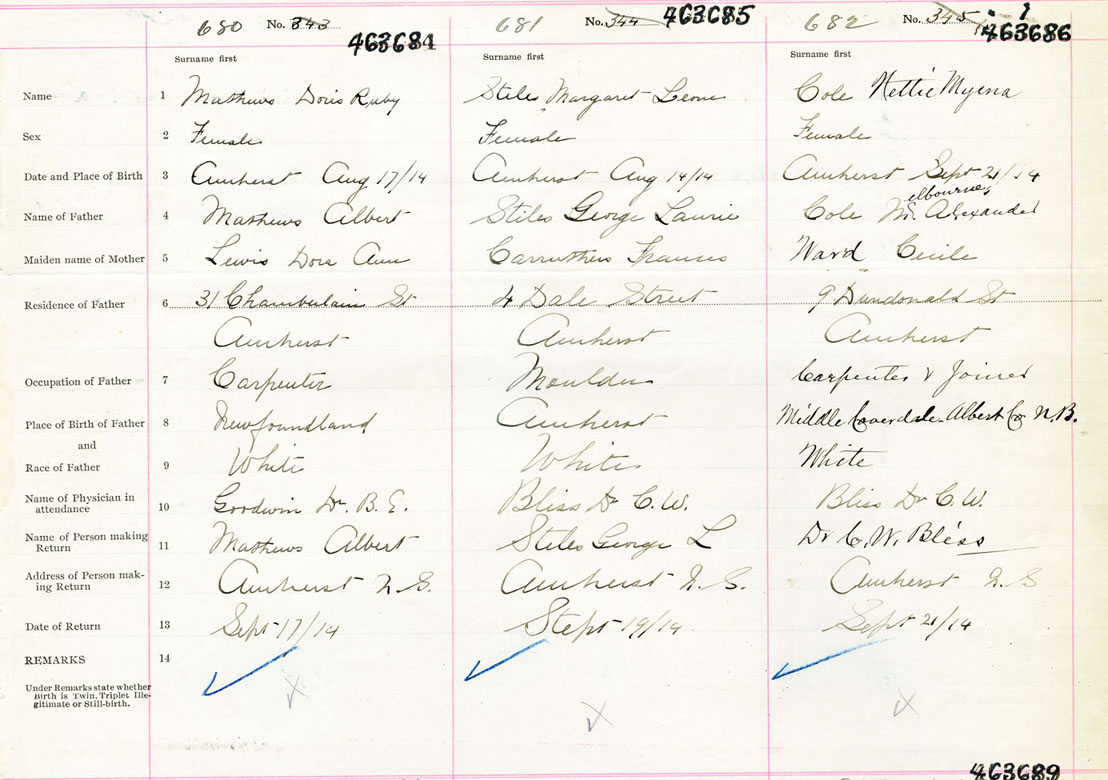 680 No. 343 681 No. 344 463685 682 No. 345 1
463684 463686
Surname first Surname first Surname first
Name 1 Mathews Doris Ruby Stiles Margaret Leone Cole Nettie Myena
Sex 2 Female Female Female
Date and Place of Birth 3 Amherst Aug 17/14 Amherst Aug 14/14 Amherst Sept 21/14
elbourne
Name of Father 4 Mathews Albert Stiles George Laurie Cole M. Alexander
Maiden name of Mother 5 Lewis Dora Ann Carruthers Frances Ward Cecile
Residence of Father 6 31 Chamberlain St 4 Dale Street 9 Dundonald St
Amherst Amherst Amherst
Occupation of Father 7 Carpenter Moulder Carpenter & Joiner
Place of Birth of Father 8 Newfoundland Amherst Middle Coverdale Albert Co N.B.
and
Race of Father 9 White White White
Name of Physician in
attendance 10 Goodwin Dr. B. E. Bliss Dr C. W. Bliss Dr C. W.
Name of Person making
Return 11 Mathews Albert Stiles George L Dr C. W. Bliss
Address of Person mak-
ing Return 12 Amherst N.S. Amherst N.S. Amherst N.S
Date of Return 13 Sept 17/14 Stept 19/14 Sept 21/14
REMARKS 14
Under Remarks state whether
Birth is Twin, Triplet Ille-
gitimate or Still-birth.
463689